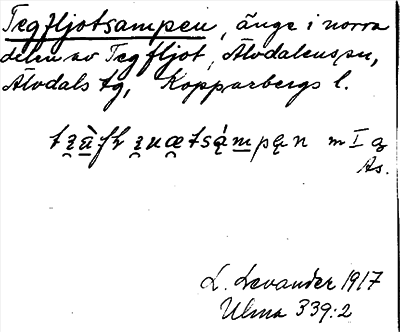 Tegfljotsampen, änge i norra
delen av Tegfljot, Älvdalens sn,
Älvdals tg, Kopparbergs l.
m I
As.
L. Levander 1917
Ulma 339:2